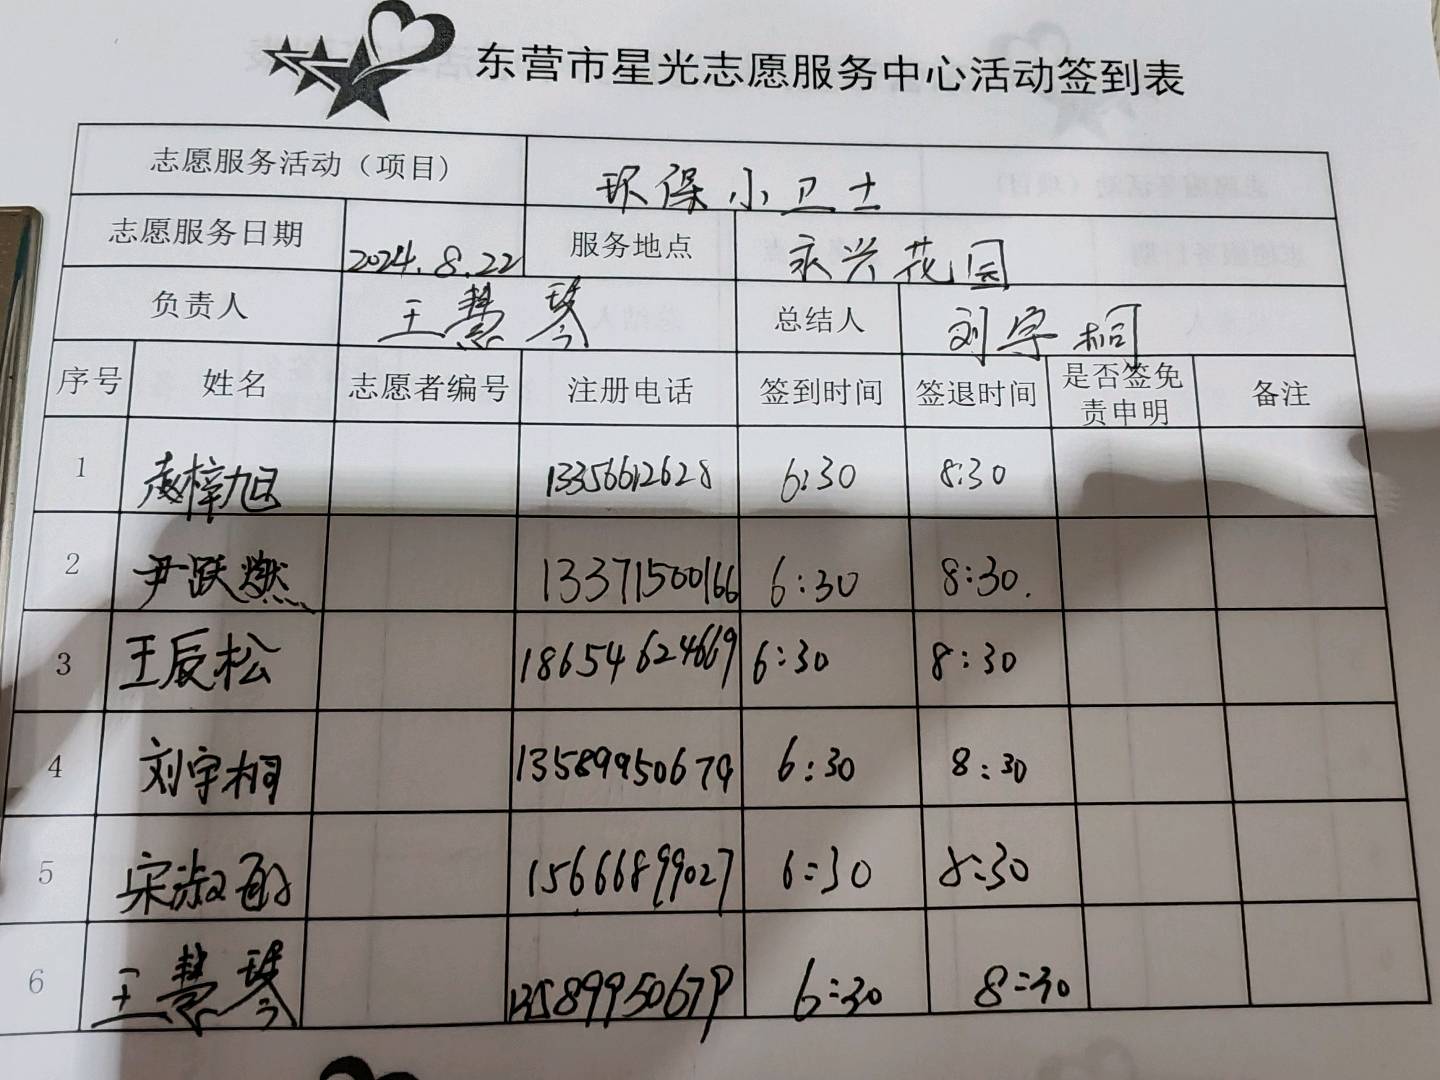 东营市星光志愿服务中心活动签到表
志愿服务活动（项目） 环保小卫士
志愿服务日期 2024.8.22 服务地点 永兴花园
负责人 王慧琴 总结人 刘宇桐
序号 姓名 志愿者编号 注册电话 签到时间 签退时间 是否签免责申明 备注
1 梓旭 13356612628 6:30 8:30
2 尹跃燃 13371500166 6:30 8:30.
3 王辰松 18654624669 6:30 8:30
4 刘宇桐 13589950679 6:30 8:30
5 宋淑 15666899027 6:30 8:30
6 王慧琴 13589950679 6:30 8:30